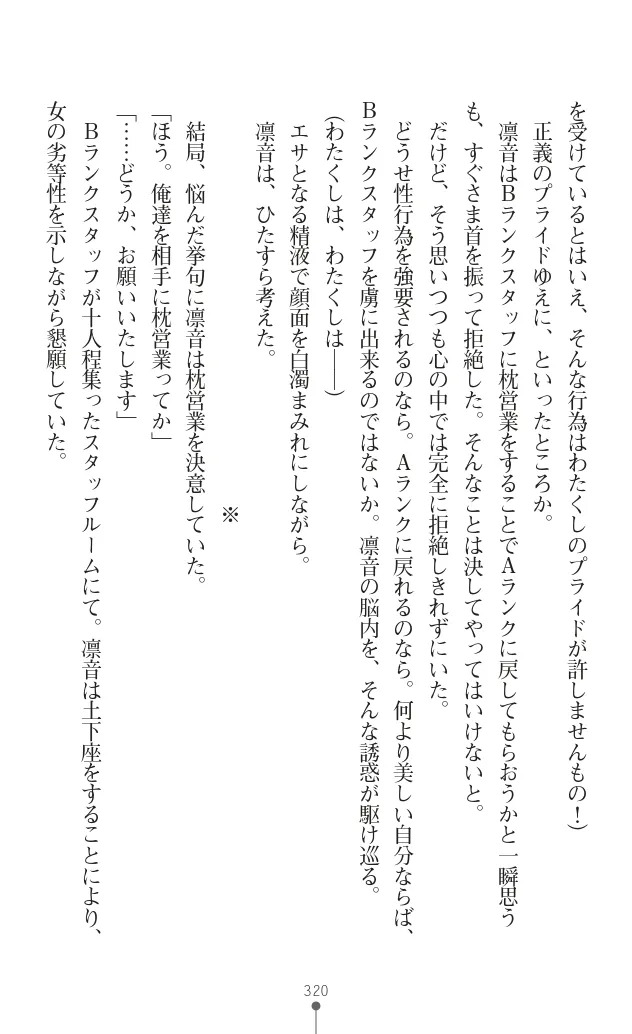 を受けているとはいえ、そんな行為はわたくしのプライドが許しませんもの！）
正義のプライドゆえに、といったところか。
凛音はＢランクスタッフに枕営業をすることでＡランクに戻してもらおうかと一瞬思う
も、すぐさま首を振って拒絶した。そんなことは決してやってはいけないと。
だけど、そう思いつつも心の中では完全に拒絶しきれずにいた。
どうせ性行為を強要されるのなら。Ａランクに戻れるのなら。何より美しい自分ならば、
Ｂランクスタッフを虜に出来るのではないか。凛音の脳内を、そんな誘惑が駆け巡る。
（わたくしは、わたくしは――）
エサとなる精液で顔面を白濁まみれにしながら。
凛音は、ひたすら考えた。
※
結局、悩んだ挙句に凛音は枕営業を決意していた。
「ほう。俺達を相手に枕営業ってか」
「……どうか、お願いいたします」
Ｂランクスタッフが十人程集ったスタッフルームにて。凛音は土下座をすることにより、
女の劣等性を示しながら懇願していた。
320